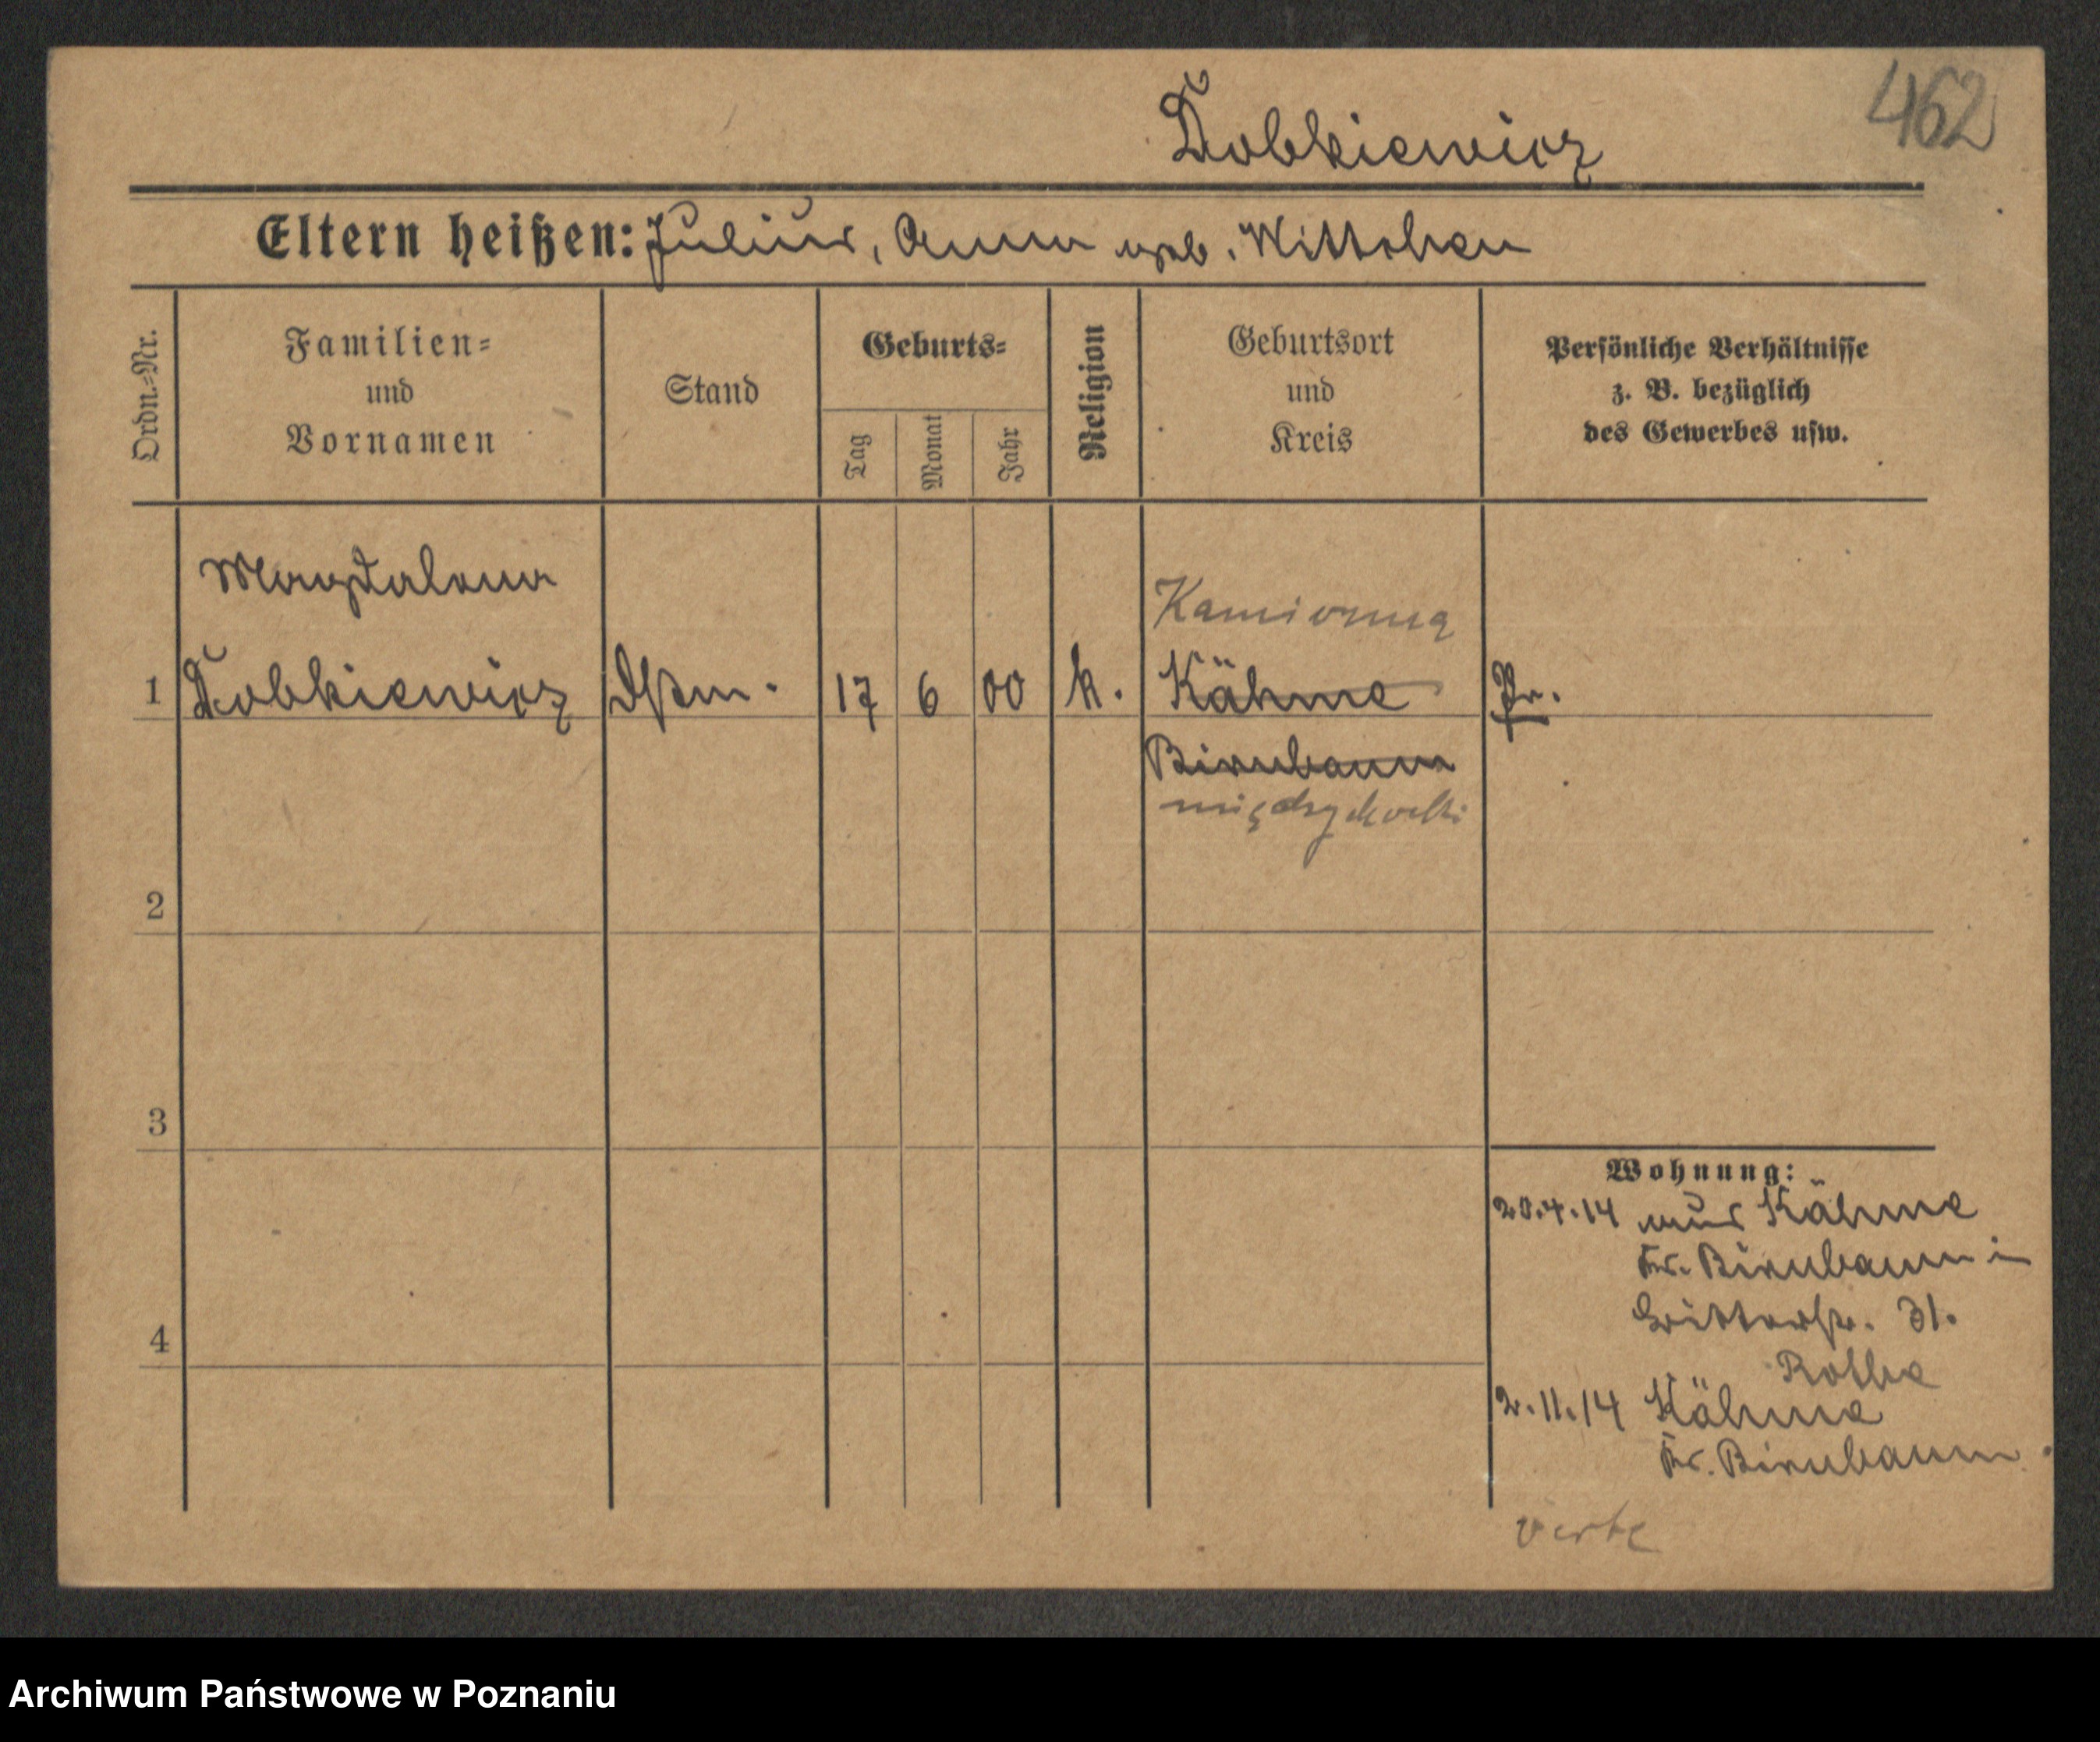 462
Dobkiewicz
Eltern heißen: Julius, Anna geb. Wittchen
Ordn.-Nr.
Familien-
und
Vornamen
Stand
Geburts-
Tag
Monat
Jahr
Religion
Geburtsort
und
Kreis
Persönliche Verhältnisse
z. B. bezüglich
des Gewerbes usw.
Magdalena
Kamionna
1 Dobkiewicz Dstm. 17 6 00 k. Kähme Pr.
Birnbaum
międzychodzki
2
3
4
Wohnung:
20.4.14 aus Kähme
Kr. Birnbaum in
Ritterstr. 31.
Rothe
2.11.14 Kähme
Kr. Birnbaum
verte
Archiwum Państwowe w Poznaniu